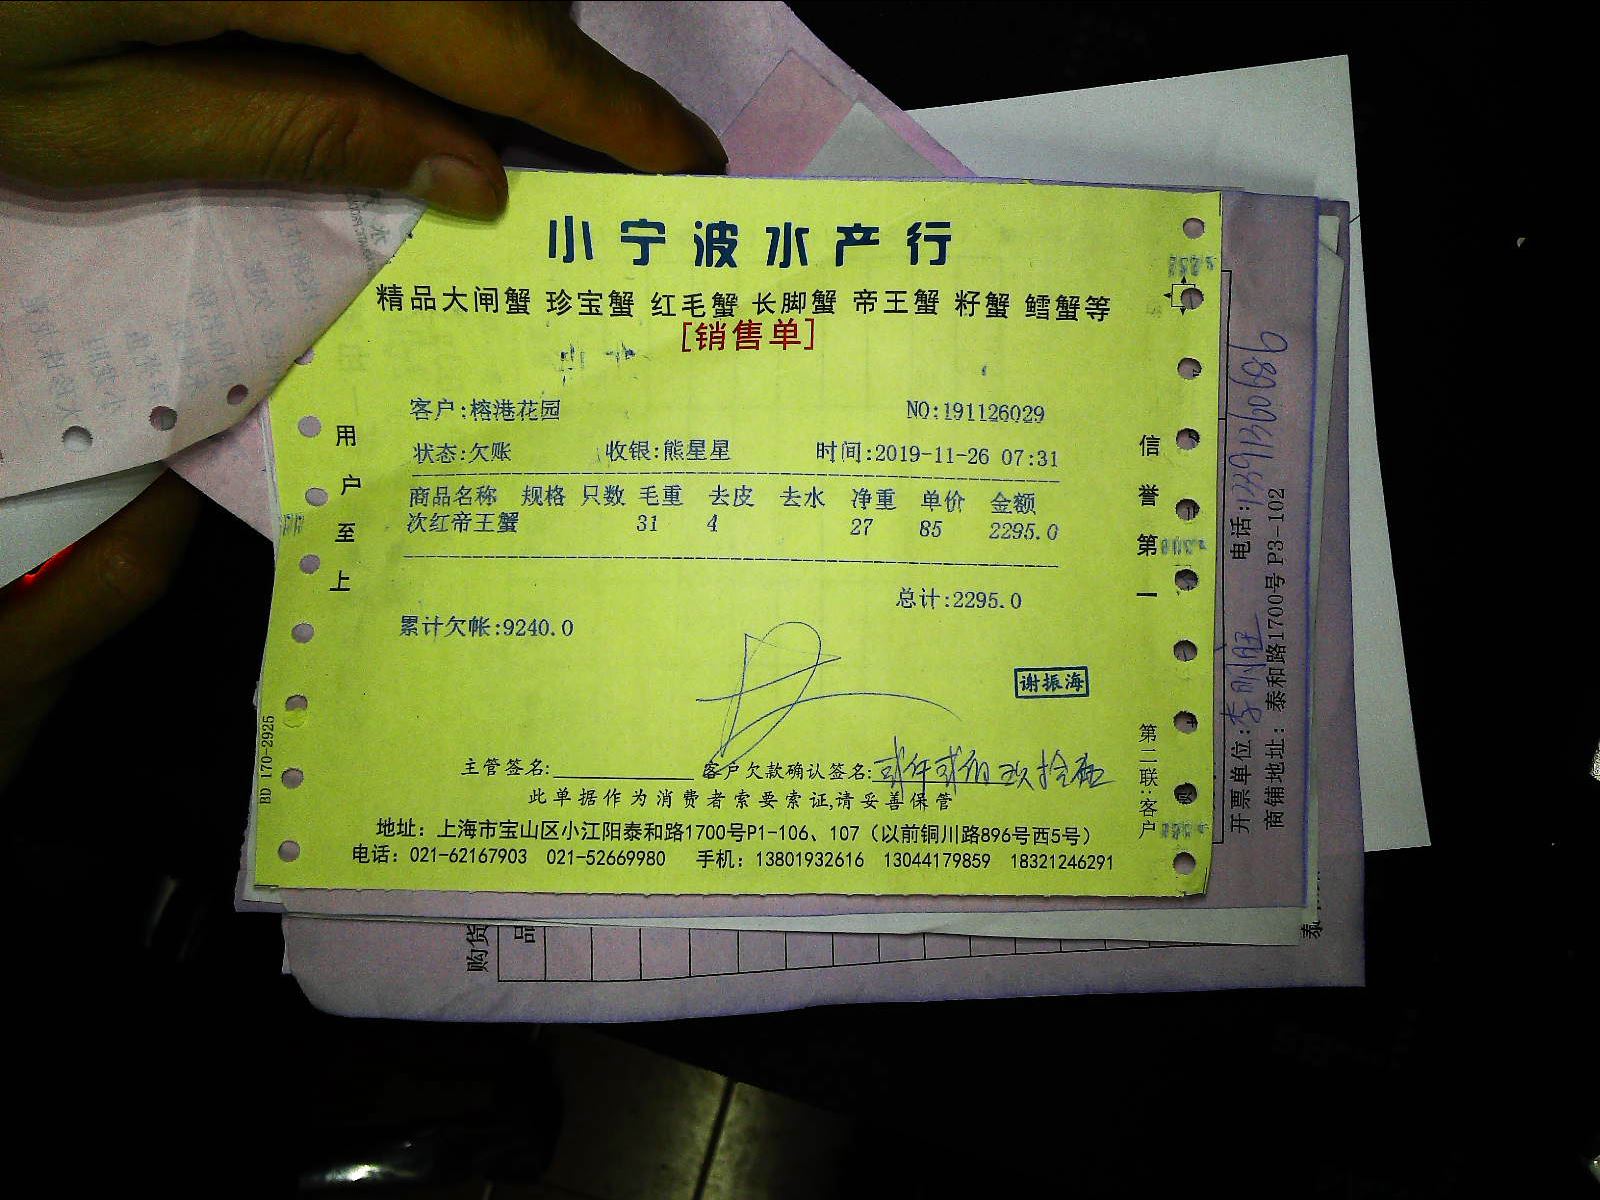 小宁波水产行
精品大闸蟹 珍宝蟹 红毛蟹 长脚蟹 帝王蟹 籽蟹 鳕蟹等
[销售单]
客户:榕港花园 NO:191126029
状态:欠账 收银:熊星星 时间:2019-11-26 07:31
商品名称 规格 只数 毛重 去皮 去水 净重 单价 金额
次红帝王蟹 31 4 27 85 2295.0
总计:2295.0
累计欠帐:9240.0
谢振海
主管签名: 客户欠款确认签名:贰仟贰佰玖拾伍
此单据作为消费者索要索证,请妥善保管
地址：上海市宝山区小江阳泰和路1700号P1-106、107（以前铜川路896号西5号）
电话：021-62167903 021-52669980 手机：13801932616 13044179859 18321246291
用户至上
信誉第一
第二联:客户
BD 170-2925
开票单位: 电话:
商铺地址：泰和路1700号 P3-102
购货
品
泰